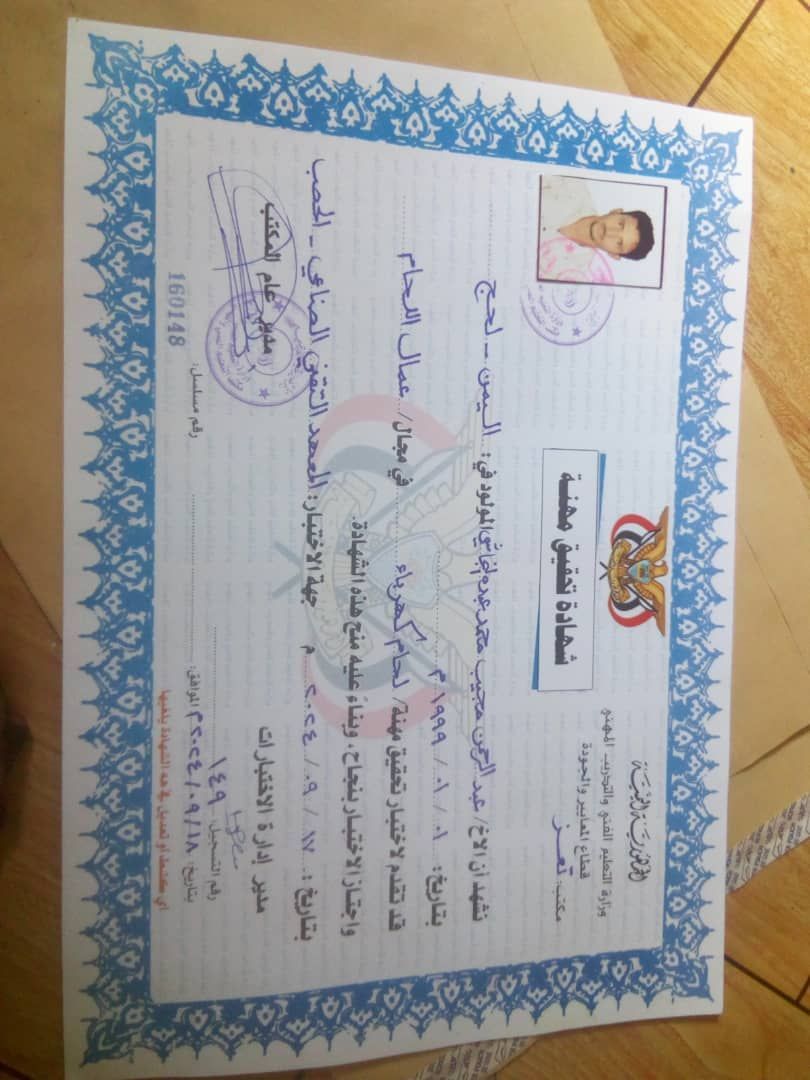 الجمهورية اليمنية
وزارة التعليم الفني والتدريب المهني
قطاع المعايير والجودة
مكتب: تعز
شهادة تحقيق مهنة
نشهد أن الأخ/ عبد الرحمن مجيب محمد عبده المولود في: اليمن - لحج
بتاريخ: ٠١ / ٠١ / ١٩٩٩ م
قد تقدم لاختبار تحقيق مهنة/ لحام كهرباء في مجال/ عمال اللحام
واجتاز الاختبار بنجاح، وبناءً عليه منح هذه الشهادة.
بتاريخ: ١٧ / ٠٩ / ٢٠٢٤ م جهة الاختبار: المعهد التقني الصناعي - الحصب
مدير إدارة الاختبارات
مدير عام المكتب
رقم التسجيل: ١٤٩
بتاريخ: ١٨ / ٠٩ / ٢٠٢٤ م الموافق:
رقم مسلسل:
160148
أي كشط أو تعديل في هذه الشهادة يلغيها